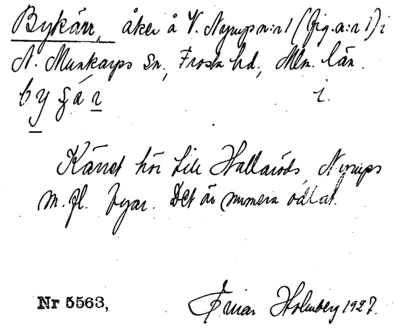 Bykärr, åker å V. Nyrup a:n:r 1 (fig. a:n:r 1) i
N. Munkarps Sn, Frosta hd, Mlm. län.
by ʃár i.
Kärret hör till Hallaröds, Nyrups
m. fl. byar. Det är numera odlat.
Nr 5563, Einar Holmberg 1927.